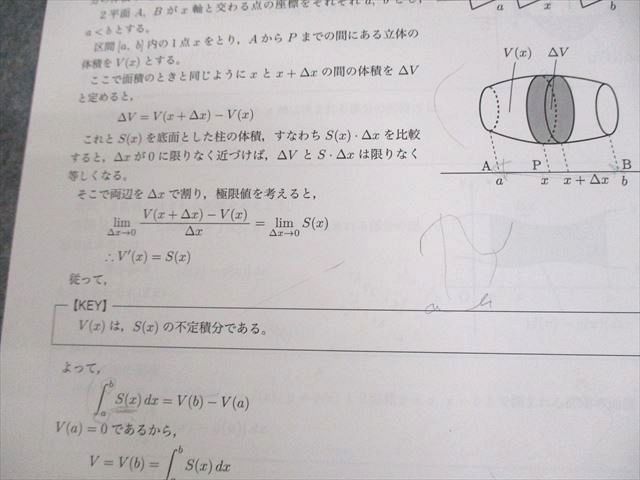 2平面 A, B が x 軸と交わる点の座標をそれぞれ a, b とし,
a < b とする。
区間 [a, b] 内の1点 x をとり, A から P までの間にある立体の
体積を V(x) とする。
ここで面積のときと同じように x と x + Δx の間の体積を ΔV
と定めると,
ΔV = V(x + Δx) − V(x)
これと S(x) を底面とした柱の体積, すなわち S(x)・Δx を比較
すると, Δx が 0 に限りなく近づけば, ΔV と S・Δx は限りなく
等しくなる。
そこで両辺を Δx で割り, 極限値を考えると,
lim_{Δx→0} (V(x + Δx) − V(x)) / Δx = lim_{Δx→0} S(x)
∴ V′(x) = S(x)
従って,
【KEY】
V(x) は, S(x) の不定積分である。
よって,
∫_a^b S(x) dx = V(b) − V(a)
V(a) = 0 であるから,
V = V(b) = ∫_a^b S(x) dx
a x b
V(x) ΔV
A P B
a x x + Δx b
a b